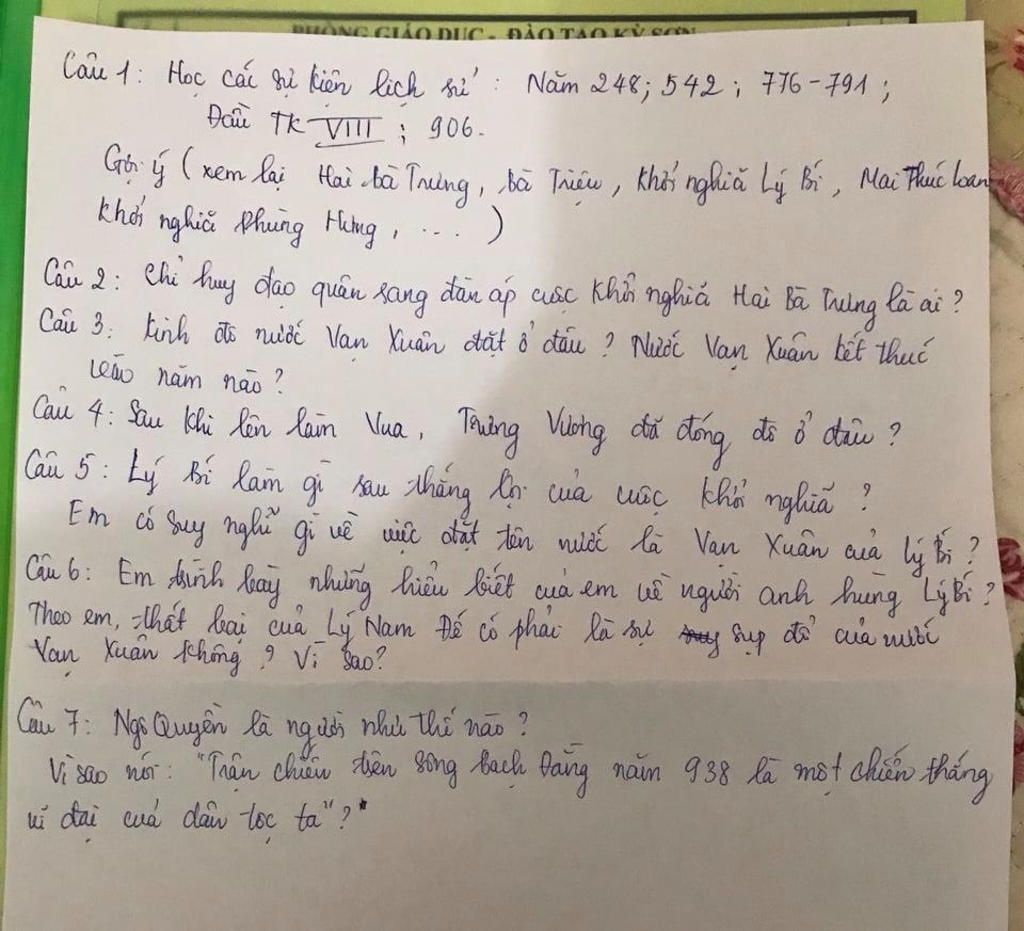 PHÒNG GIÁO DỤC - ĐÀO TẠO KỲ SƠN
Câu 1: Học các sự kiện lịch sử: Năm 248; 542; 776-791;
Đầu TK VIII; 906.
Gợi ý (xem lại Hai bà Trưng, bà Triệu, Khởi nghĩa Lý Bí, Mai Thúc Loan
Khởi nghĩa Phùng Hưng, ....)
Câu 2: Chỉ huy đạo quân sang đàn áp cuộc Khởi nghĩa Hai Bà Trưng là ai?
Câu 3: Kinh đô nước Vạn Xuân đặt ở đâu? Nước Vạn Xuân kết thúc
vào năm nào?
Câu 4: Sau khi lên làm Vua, Trưng Vương đã đóng đô ở đâu?
Câu 5: Lý Bí làm gì sau thắng lợi của cuộc khởi nghĩa?
Em có suy nghĩ gì về việc đặt tên nước là Vạn Xuân của Lý Bí?
Câu 6: Em trình bày những hiểu biết của em về người anh hùng Lý Bí?
Theo em, thất bại của Lý Nam Đế có phải là sự sụp đổ của nước
Vạn Xuân không? Vì sao?
Câu 7: Ngô Quyền là người như thế nào?
Vì sao nói: "Trận chiến trên sông bạch Đằng năm 938 là một chiến thắng
vĩ đại của dân tộc ta"?